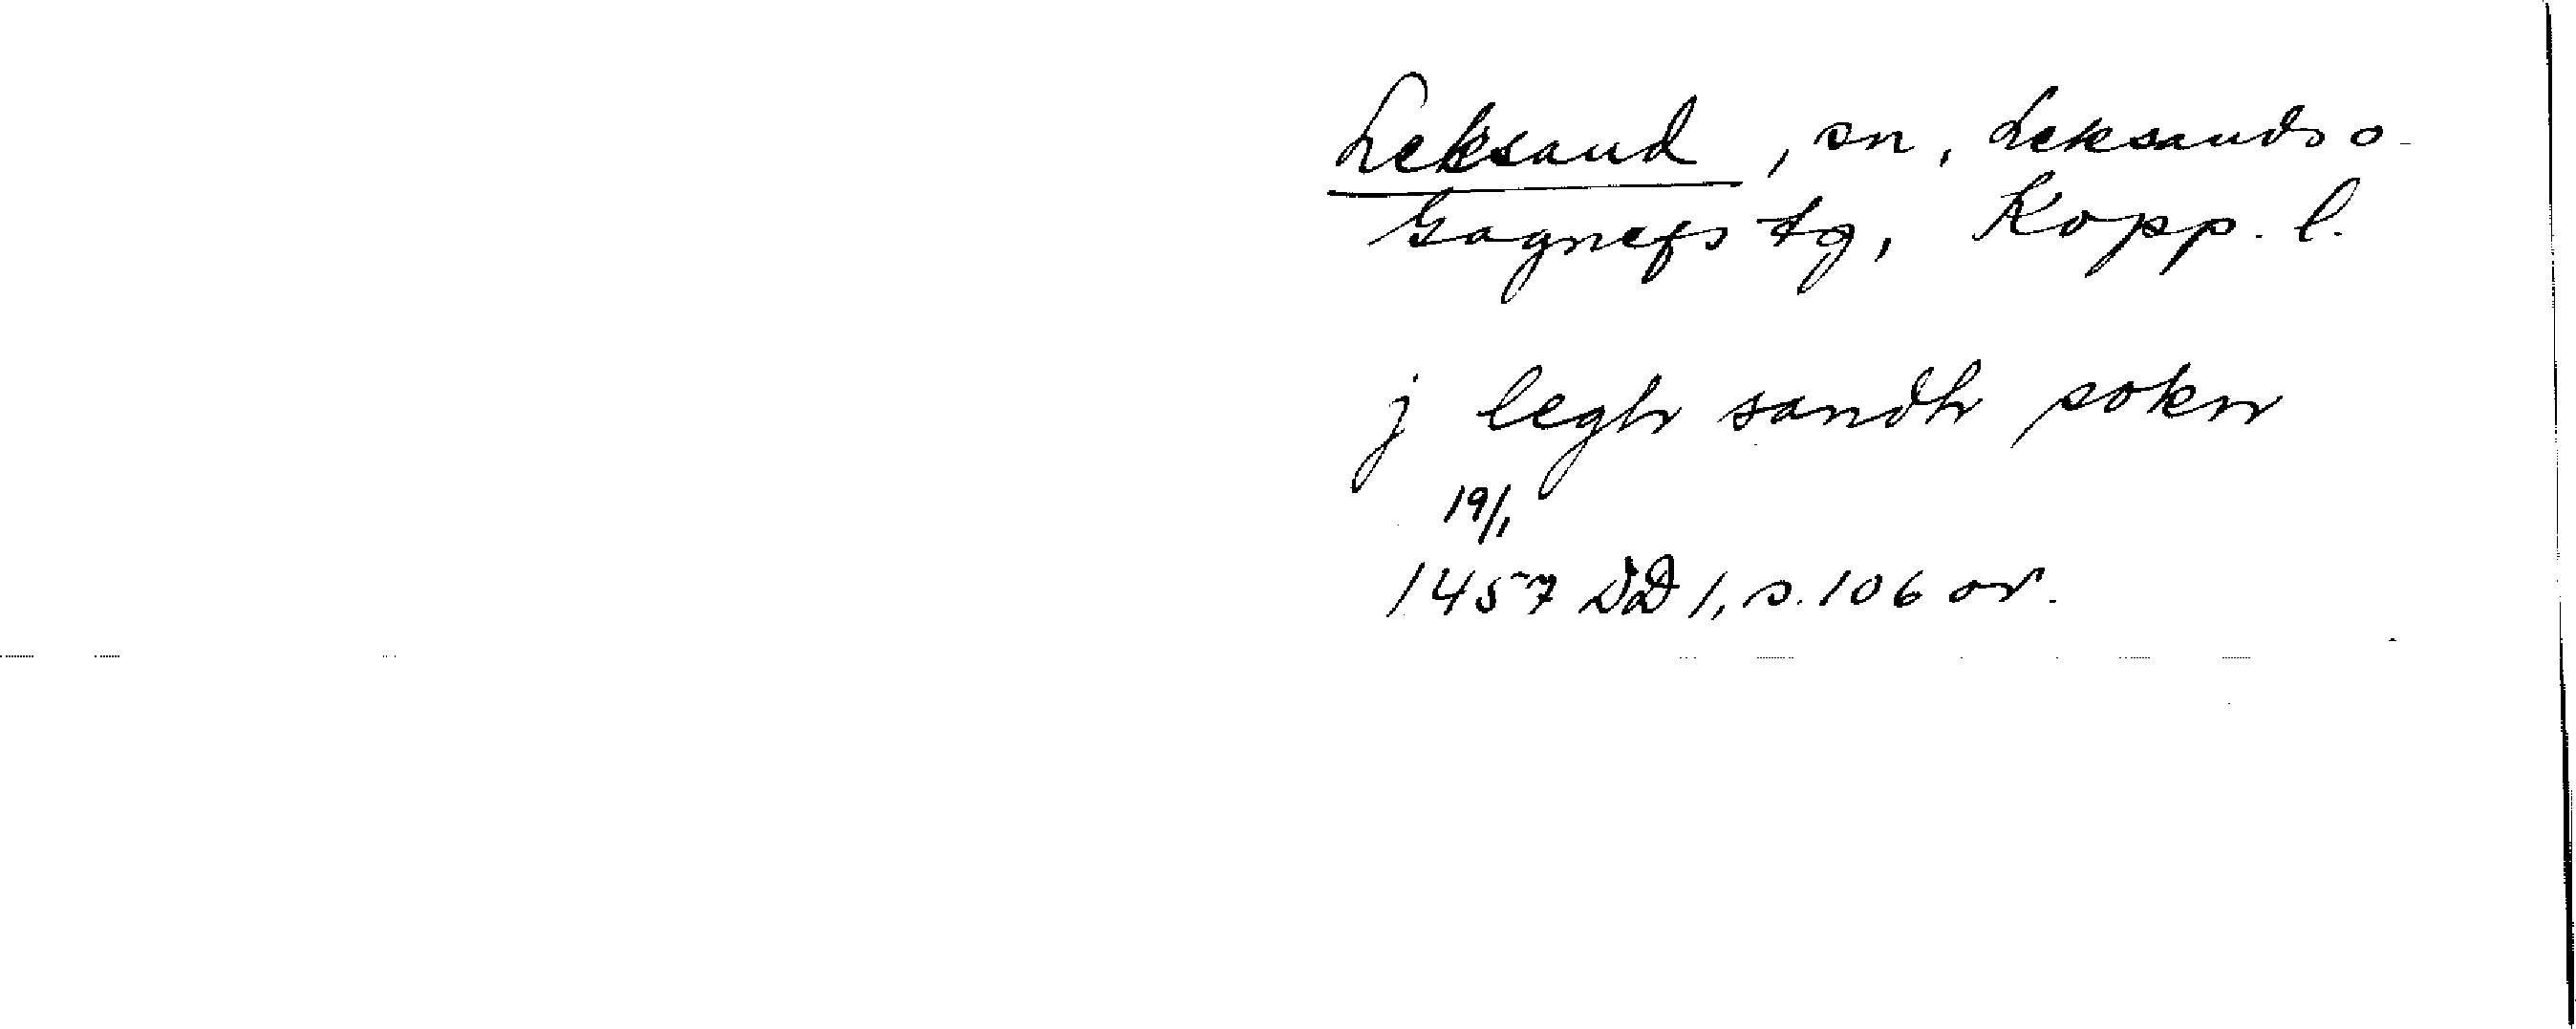 Leksand, sn, Leksands o.
Gagnefs tg, Kopp. l.
j legh sandh sokn
19/1
1457 DD 1, s. 106 or.